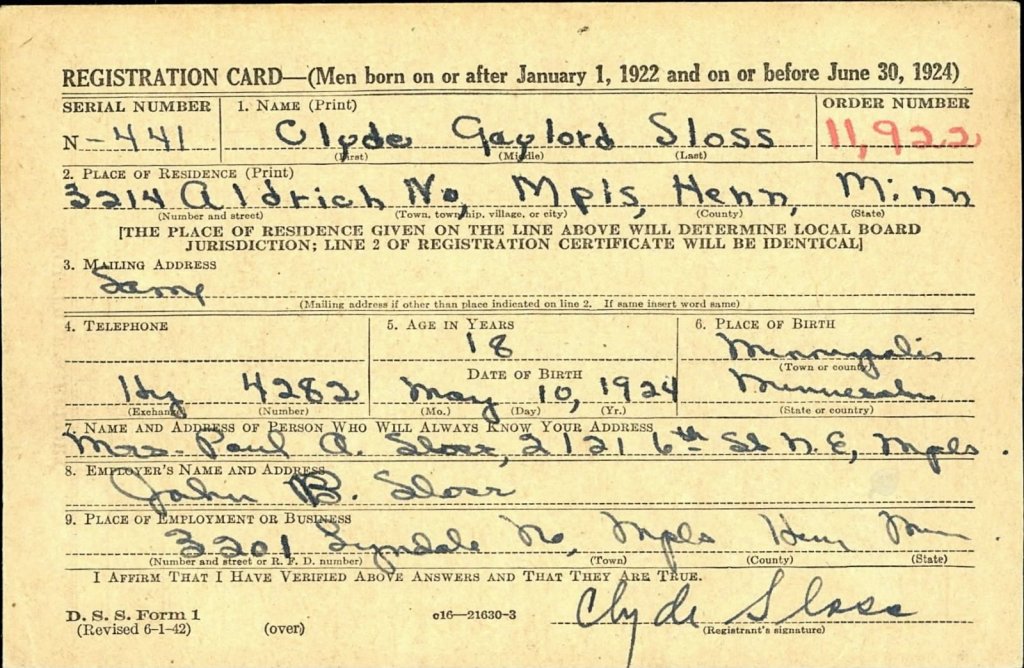 REGISTRATION CARD—(Men born on or after January 1, 1922 and on or before June 30, 1924)
SERIAL NUMBER 1. NAME (Print) ORDER NUMBER
N -441 Clyde Gaylord Sloss 11,922
(First) (Middle) (Last)
2. PLACE OF RESIDENCE (Print)
3214 Aldrich No, Mpls, Henn, Minn
(Number and street) (Town, township, village, or city) (County) (State)
[THE PLACE OF RESIDENCE GIVEN ON THE LINE ABOVE WILL DETERMINE LOCAL BOARD
JURISDICTION; LINE 2 OF REGISTRATION CERTIFICATE WILL BE IDENTICAL]
3. MAILING ADDRESS
Same
(Mailing address if other than place indicated on line 2. If same insert word same)
4. TELEPHONE 5. AGE IN YEARS 6. PLACE OF BIRTH
18 Minneapolis
(Town or county)
DATE OF BIRTH
Hy 4282 May 10, 1924 Minnesota
(Exchange) (Number) (Mo.) (Day) (Yr.) (State or country)
7. NAME AND ADDRESS OF PERSON WHO WILL ALWAYS KNOW YOUR ADDRESS
Mrs. Paul A. Sloss, 2121 6th St N.E, Mpls.
8. EMPLOYER'S NAME AND ADDRESS
John B. Sloss
9. PLACE OF EMPLOYMENT OR BUSINESS
3201 Lyndale No, Mpls Henn Minn
(Number and street or R. F. D. number) (Town) (County) (State)
I AFFIRM THAT I HAVE VERIFIED ABOVE ANSWERS AND THAT THEY ARE TRUE.
D. S. S. Form 1 c16—21630-3 Clyde Sloss
(Revised 6-1-42) (over) (Registrant's signature)